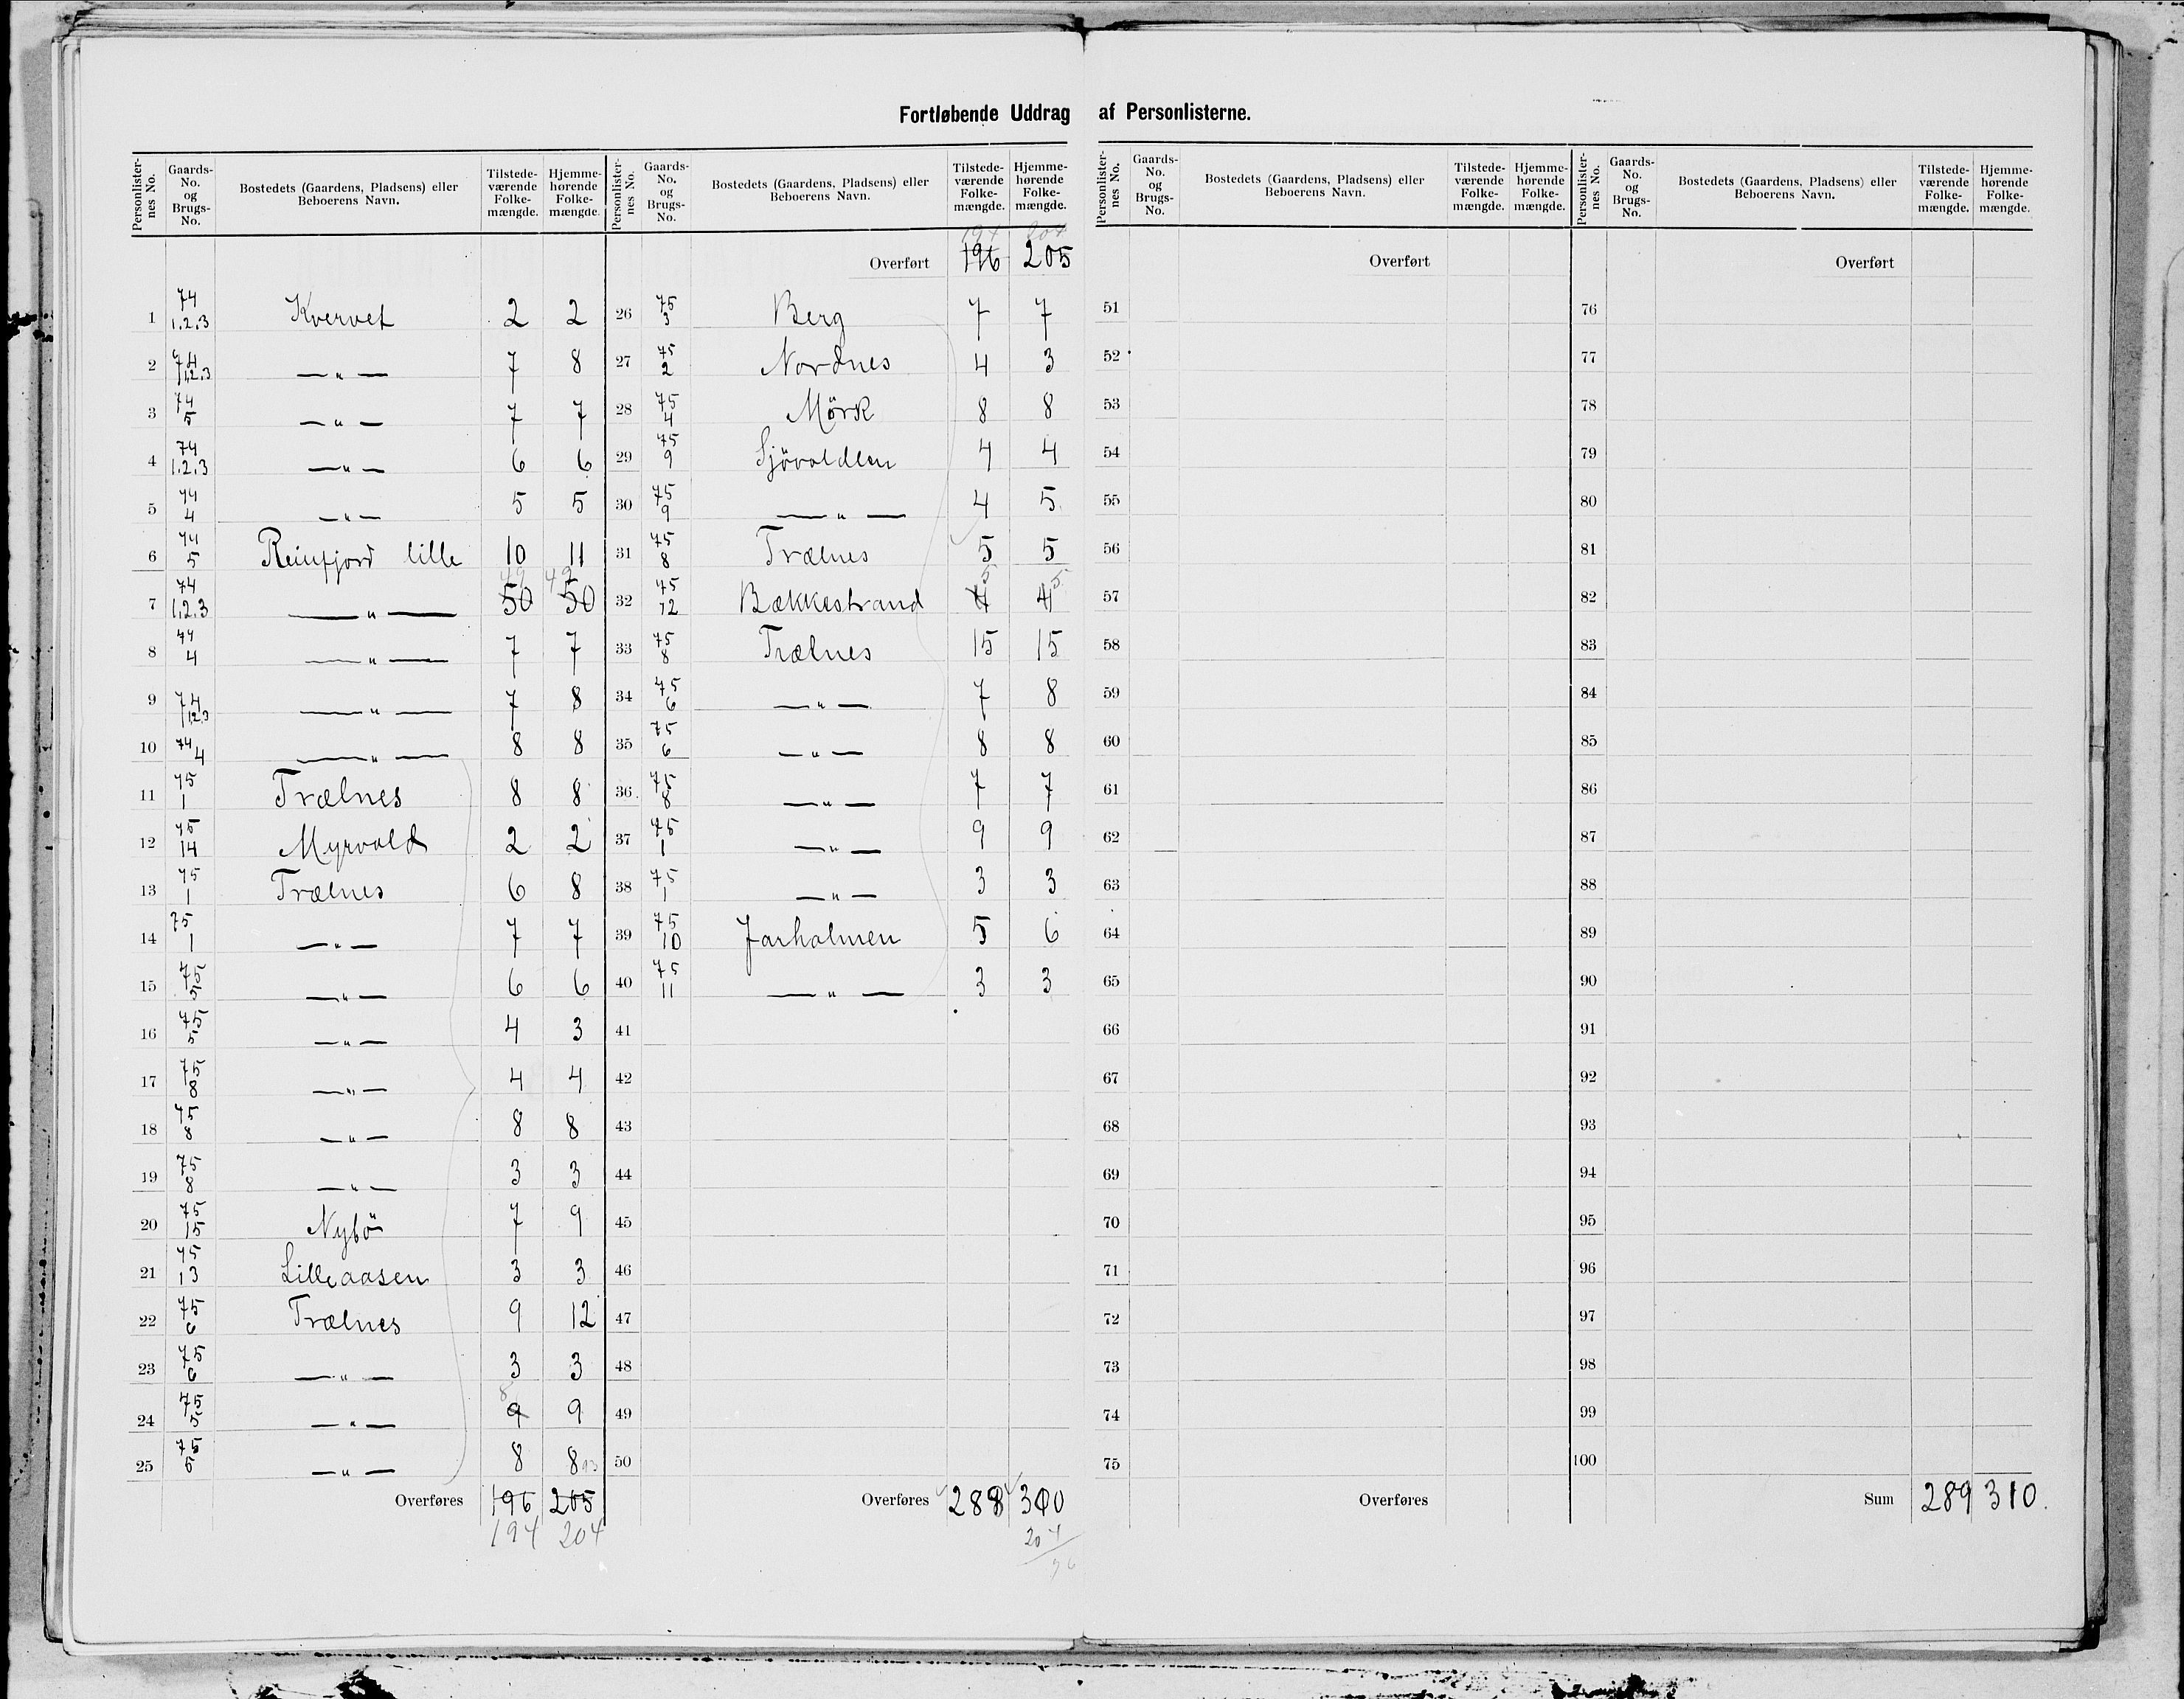 Fortløbende Uddrag af Personlisterne.
Personlister-nes No. Gaards-No. og Brugs-No. Bostedets (Gaardens, Pladsens) eller Beboerens Navn. Tilstede-værende Folke-mængde. Hjemme-hørende Folke-mængde.
1 74 1.2.3 Kvervet 2 2
2 74 1,2.3 —„— 7 8
3 74 5 —„— 7 7
4 74 1.2.3 —„— 6 6
5 74 4 —„— 5 5
6 74 5 Reinfjord lille 10 11
7 74 1,2.3 —„— 50 50 49 49
8 74 4 —„— 7 7
9 74 1,2.3 —„— 7 8
10 74 4 —„— 8 8
11 75 1 Trælnes 8 8
12 75 14 Myrvold 2 2
13 75 1 Trælnes 6 8
14 75 1 —„— 7 7
15 75 —„— 6 6
16 75 5 —„— 4 3
17 75 8 —„— 4 4
18 75 8 —„— 8 8
19 75 8 —„— 3 3
20 75 15 Nybö 7 9
21 75 13 Lilleaasen 3 3
22 75 6 Trælnes 9 12
23 75 6 —„— 3 3
24 75 —„— 9 8 9
25 75 5 —„— 8 8
Overføres 196 205
194 204
Personlister-nes No. Gaards-No. og Brugs-No. Bostedets (Gaardens, Pladsens) eller Beboerens Navn. Tilstede-værende Folke-mængde. Hjemme-hørende Folke-mængde.
194 204
Overført 196 205
26 75 3 Berg 7 7
27 75 2 Nordnes 4 3
28 75 4 Mörk 8 8
29 75 9 Sjövoldlen 4 4
30 75 9 —„— 4 5
31 75 8 Trælnes 5 5
32 75 12 Bækkestrand 4 5 4 5
33 75 8 Trælnes 15 15
34 75 6 —„— 7 8
35 75 6 —„— 8 8
36 75 8 —„— 7 7
37 75 1 —„— 9 9
38 75 1 —„— 3 3
39 75 10 Jarholmen 5 6
40 75 11 —„— 3 3
41
42
43
44
45
46
47
48
49
50
Overføres 288 300
204
96
Personlister-nes No. Gaards-No. og Brugs-No. Bostedets (Gaardens, Pladsens) eller Beboerens Navn. Tilstede-værende Folke-mængde. Hjemme-hørende Folke-mængde.
Overført
51
52
53
54
55
56
57
58
59
60
61
62
63
64
65
66
67
68
69
70
71
72
73
74
75
Overføres
Personlister-nes No. Gaards-No. og Brugs-No. Bostedets (Gaardens, Pladsens) eller Beboerens Navn. Tilstede-værende Folke-mængde. Hjemme-hørende Folke-mængde.
Overført
76
77
78
79
80
81
82
83
84
85
86
87
88
89
90
91
92
93
94
95
96
97
98
99
100
Sum 289 310.